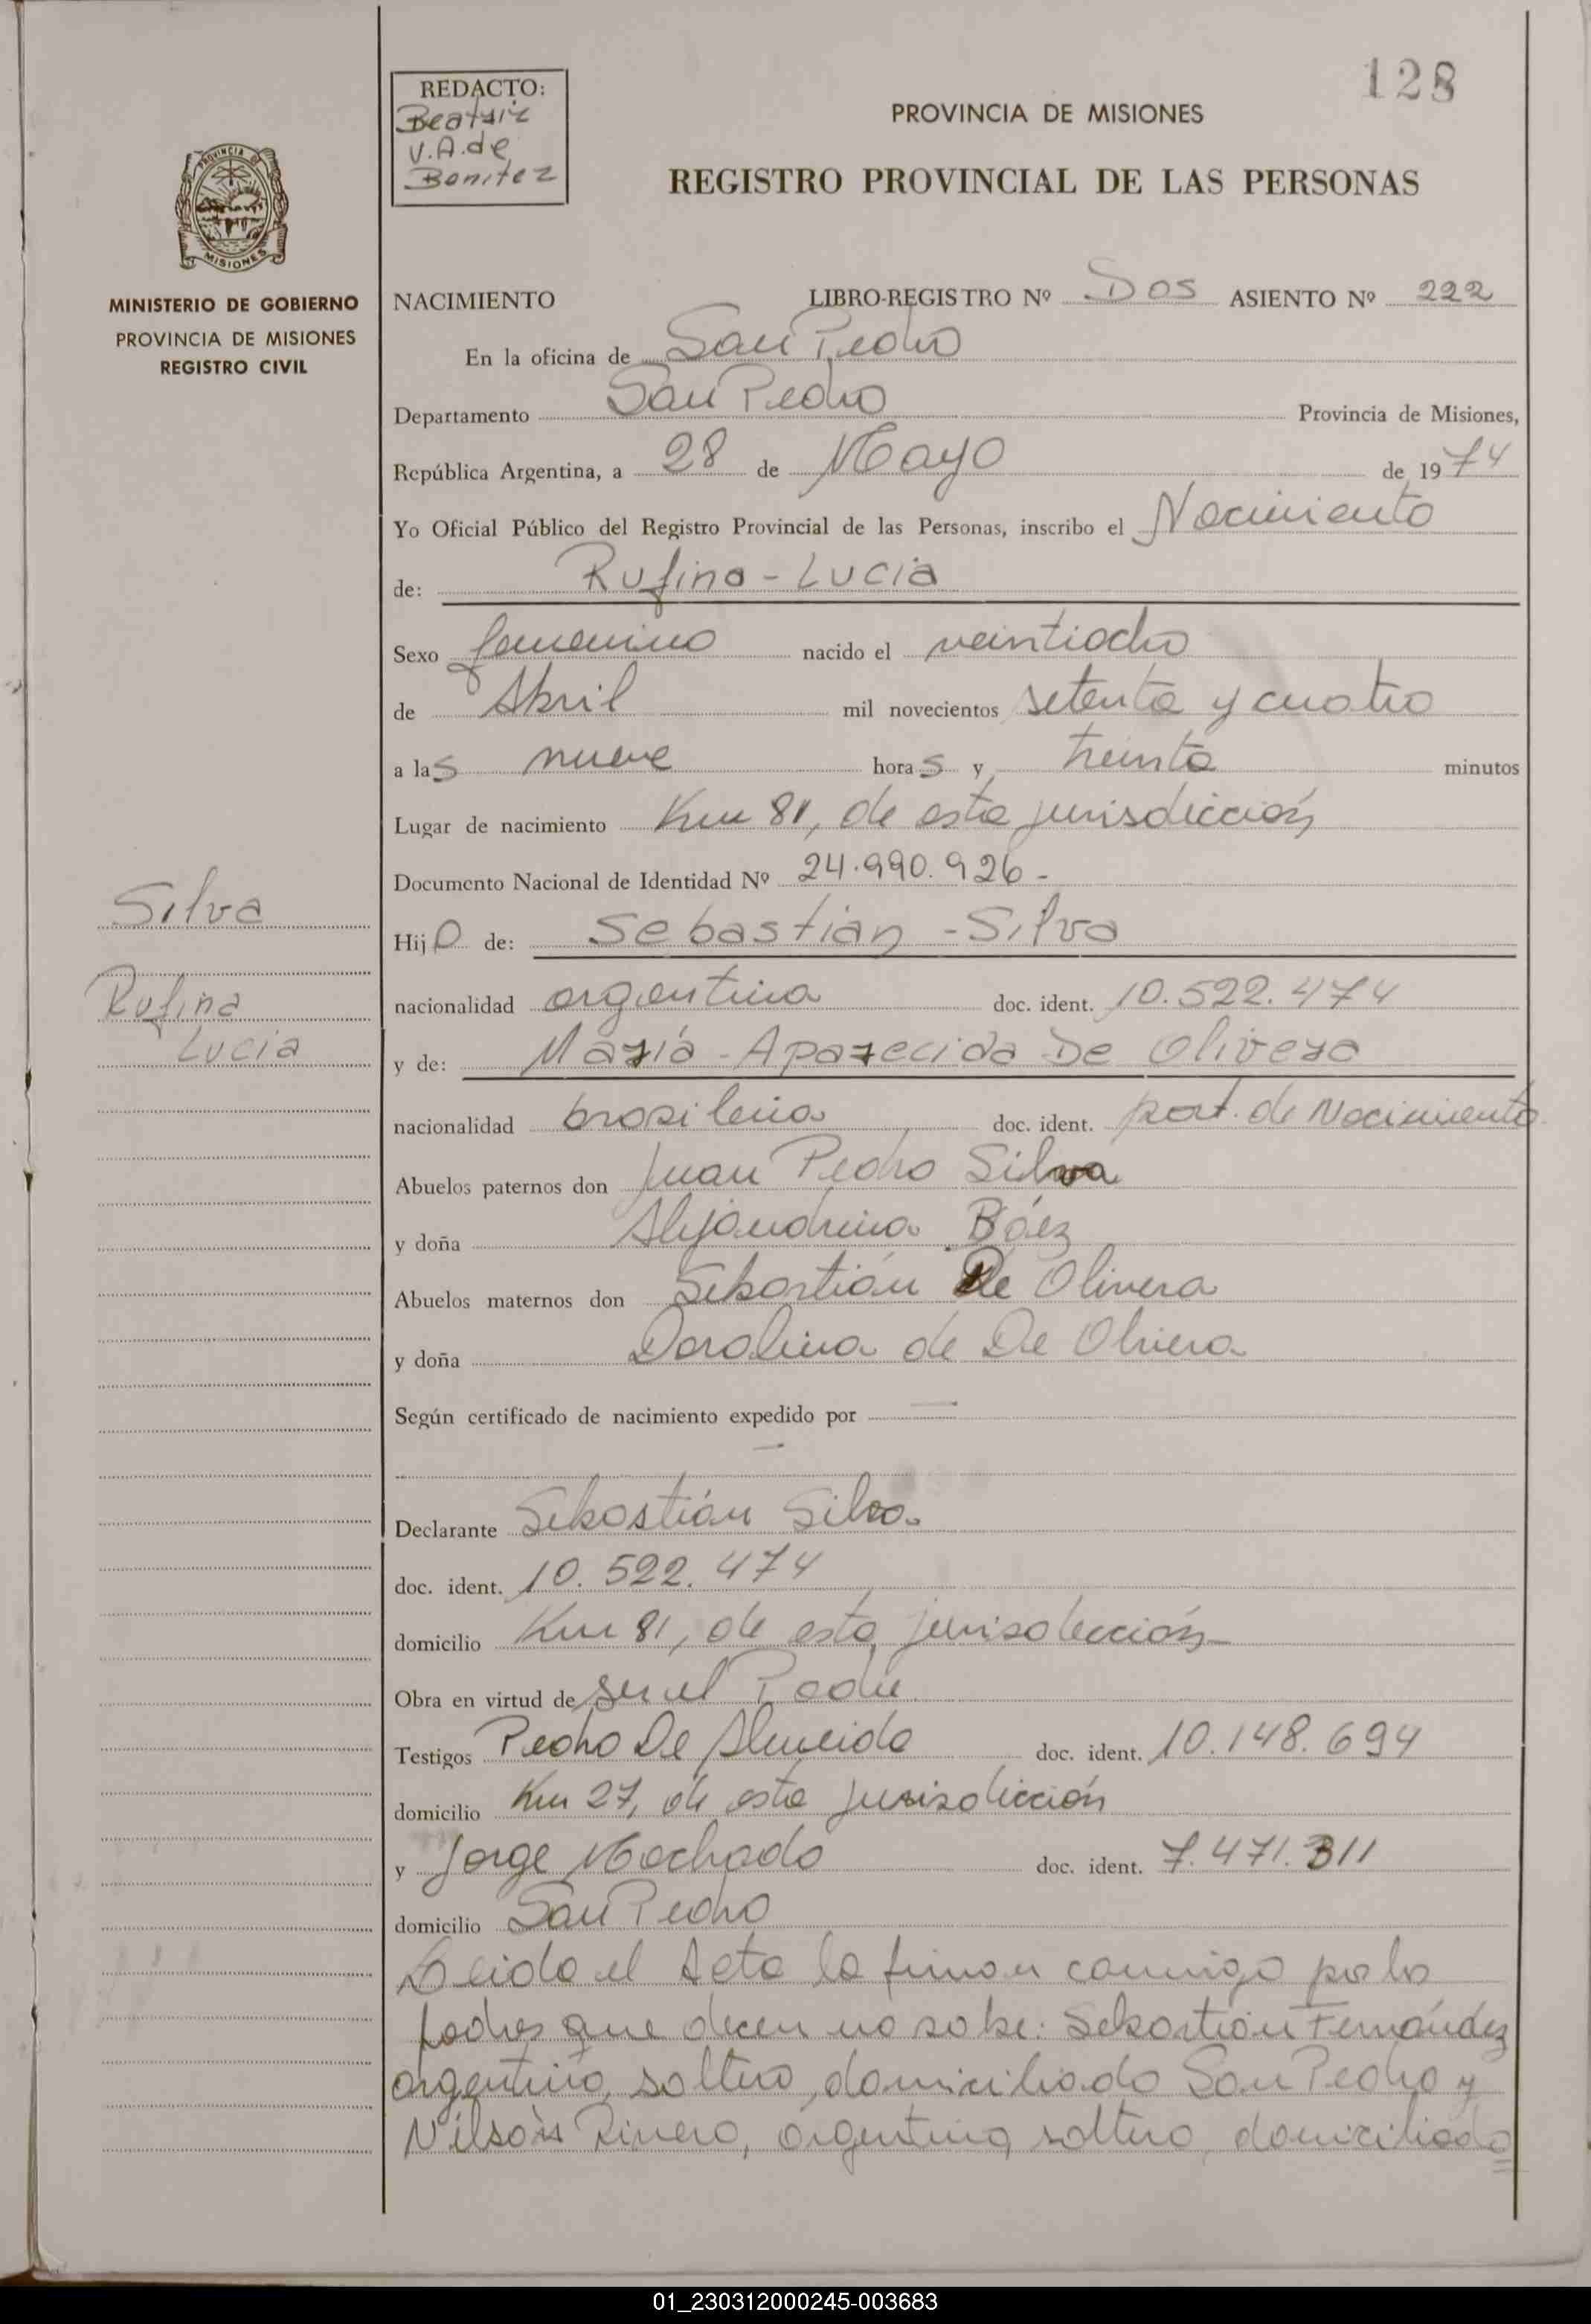 128
REDACTO:
Beatriz
V.A. de
Benitez
PROVINCIA DE MISIONES
REGISTRO PROVINCIAL DE LAS PERSONAS
PROVINCIA DE
MISIONES
MINISTERIO DE GOBIERNO
PROVINCIA DE MISIONES
REGISTRO CIVIL
NACIMIENTO LIBRO-REGISTRO Nº Dos ASIENTO Nº 222
En la oficina de San Pedro
Departamento San Pedro Provincia de Misiones,
República Argentina, a 28 de Mayo de 1974
Yo Oficial Público del Registro Provincial de las Personas, inscribo el Nacimiento
de: Rufina - Lucia
Sexo femenino nacido el veintiocho
de Abril mil novecientos setenta y cuatro
a las nueve horas y treinta minutos
Lugar de nacimiento Km 81, de esta jurisdicción
Documento Nacional de Identidad Nº 24.990.926-
Silva
Rufina
Lucia
Hijo de: Sebastián - Silva
nacionalidad argentina doc. ident. 10.522.474
y de: María - Aparecida De Olivera
nacionalidad brasileña doc. ident. part. de Nacimiento
Abuelos paternos don Juan Pedro Silva
y doña Alejandrina Báez
Abuelos maternos don Sebastián De Olivera
y doña Doralina de De Olivera
Según certificado de nacimiento expedido por —
—
Declarante Sebastián Silva.
doc. ident. 10.522.474
domicilio Km 81, de esta jurisdicción
Obra en virtud de ser el Padre
Testigos Pedro De Almeida doc. ident. 10.148.694
domicilio Km 27, de esta jurisdicción
y Jorge Machado doc. ident. 7.471.311
domicilio San Pedro
Leida el Acta la firman conmigo por los
padres que dicen no saber: Sebastián Fernández
argentino, soltero, domiciliado San Pedro y
Nilson Rivero, argentino, soltero, domiciliado
01_230312000245-003683